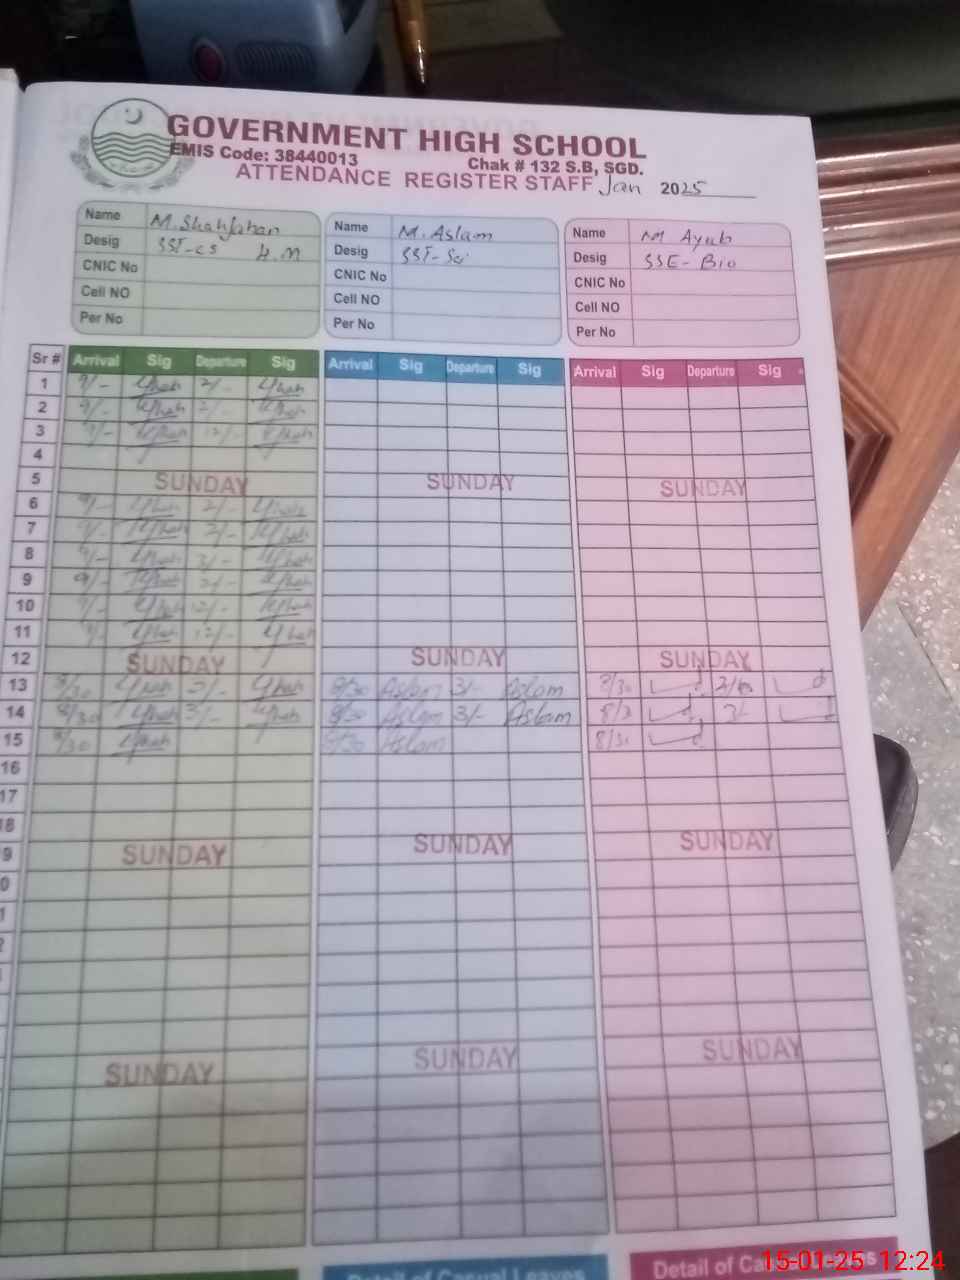 GOVERNMENT HIGH SCHOOL
EMIS Code: 38440013 Chak # 132 S.B, SGD.
ATTENDANCE REGISTER STAFF Jan 2025
Name M. Shahjahan Name M. Aslam Name M Ayub
Desig SST-CS H.M Desig SST-Sci Desig SSE-Bio
CNIC No CNIC No CNIC No
Cell NO Cell NO Cell NO
Per No Per No Per No
Sr # Arrival Sig Departure Sig Arrival Sig Departure Sig Arrival Sig Departure Sig
1 9/- 2/-
2 9/- 2/-
3 9/- 12/-
4
5 SUNDAY SUNDAY SUNDAY
6 9/- 2/-
7 9/- 2/-
8 9/- 2/-
9 9/- 2/-
10 9/- 12/-
11 9/- 12/-
12 SUNDAY SUNDAY SUNDAY
13 8/30 3/- 8/30 Aslam 3/- Aslam 8/30
14 8/30 3/- 8/30 Aslam 3/- Aslam 8/3 3/-
15 8/30 8/30 Aslam 8/30
16
17
18
9 SUNDAY SUNDAY SUNDAY
0
1
2
SUNDAY SUNDAY SUNDAY
Detail of Casual Leaves Detail of Ca
15-01-25 12:24